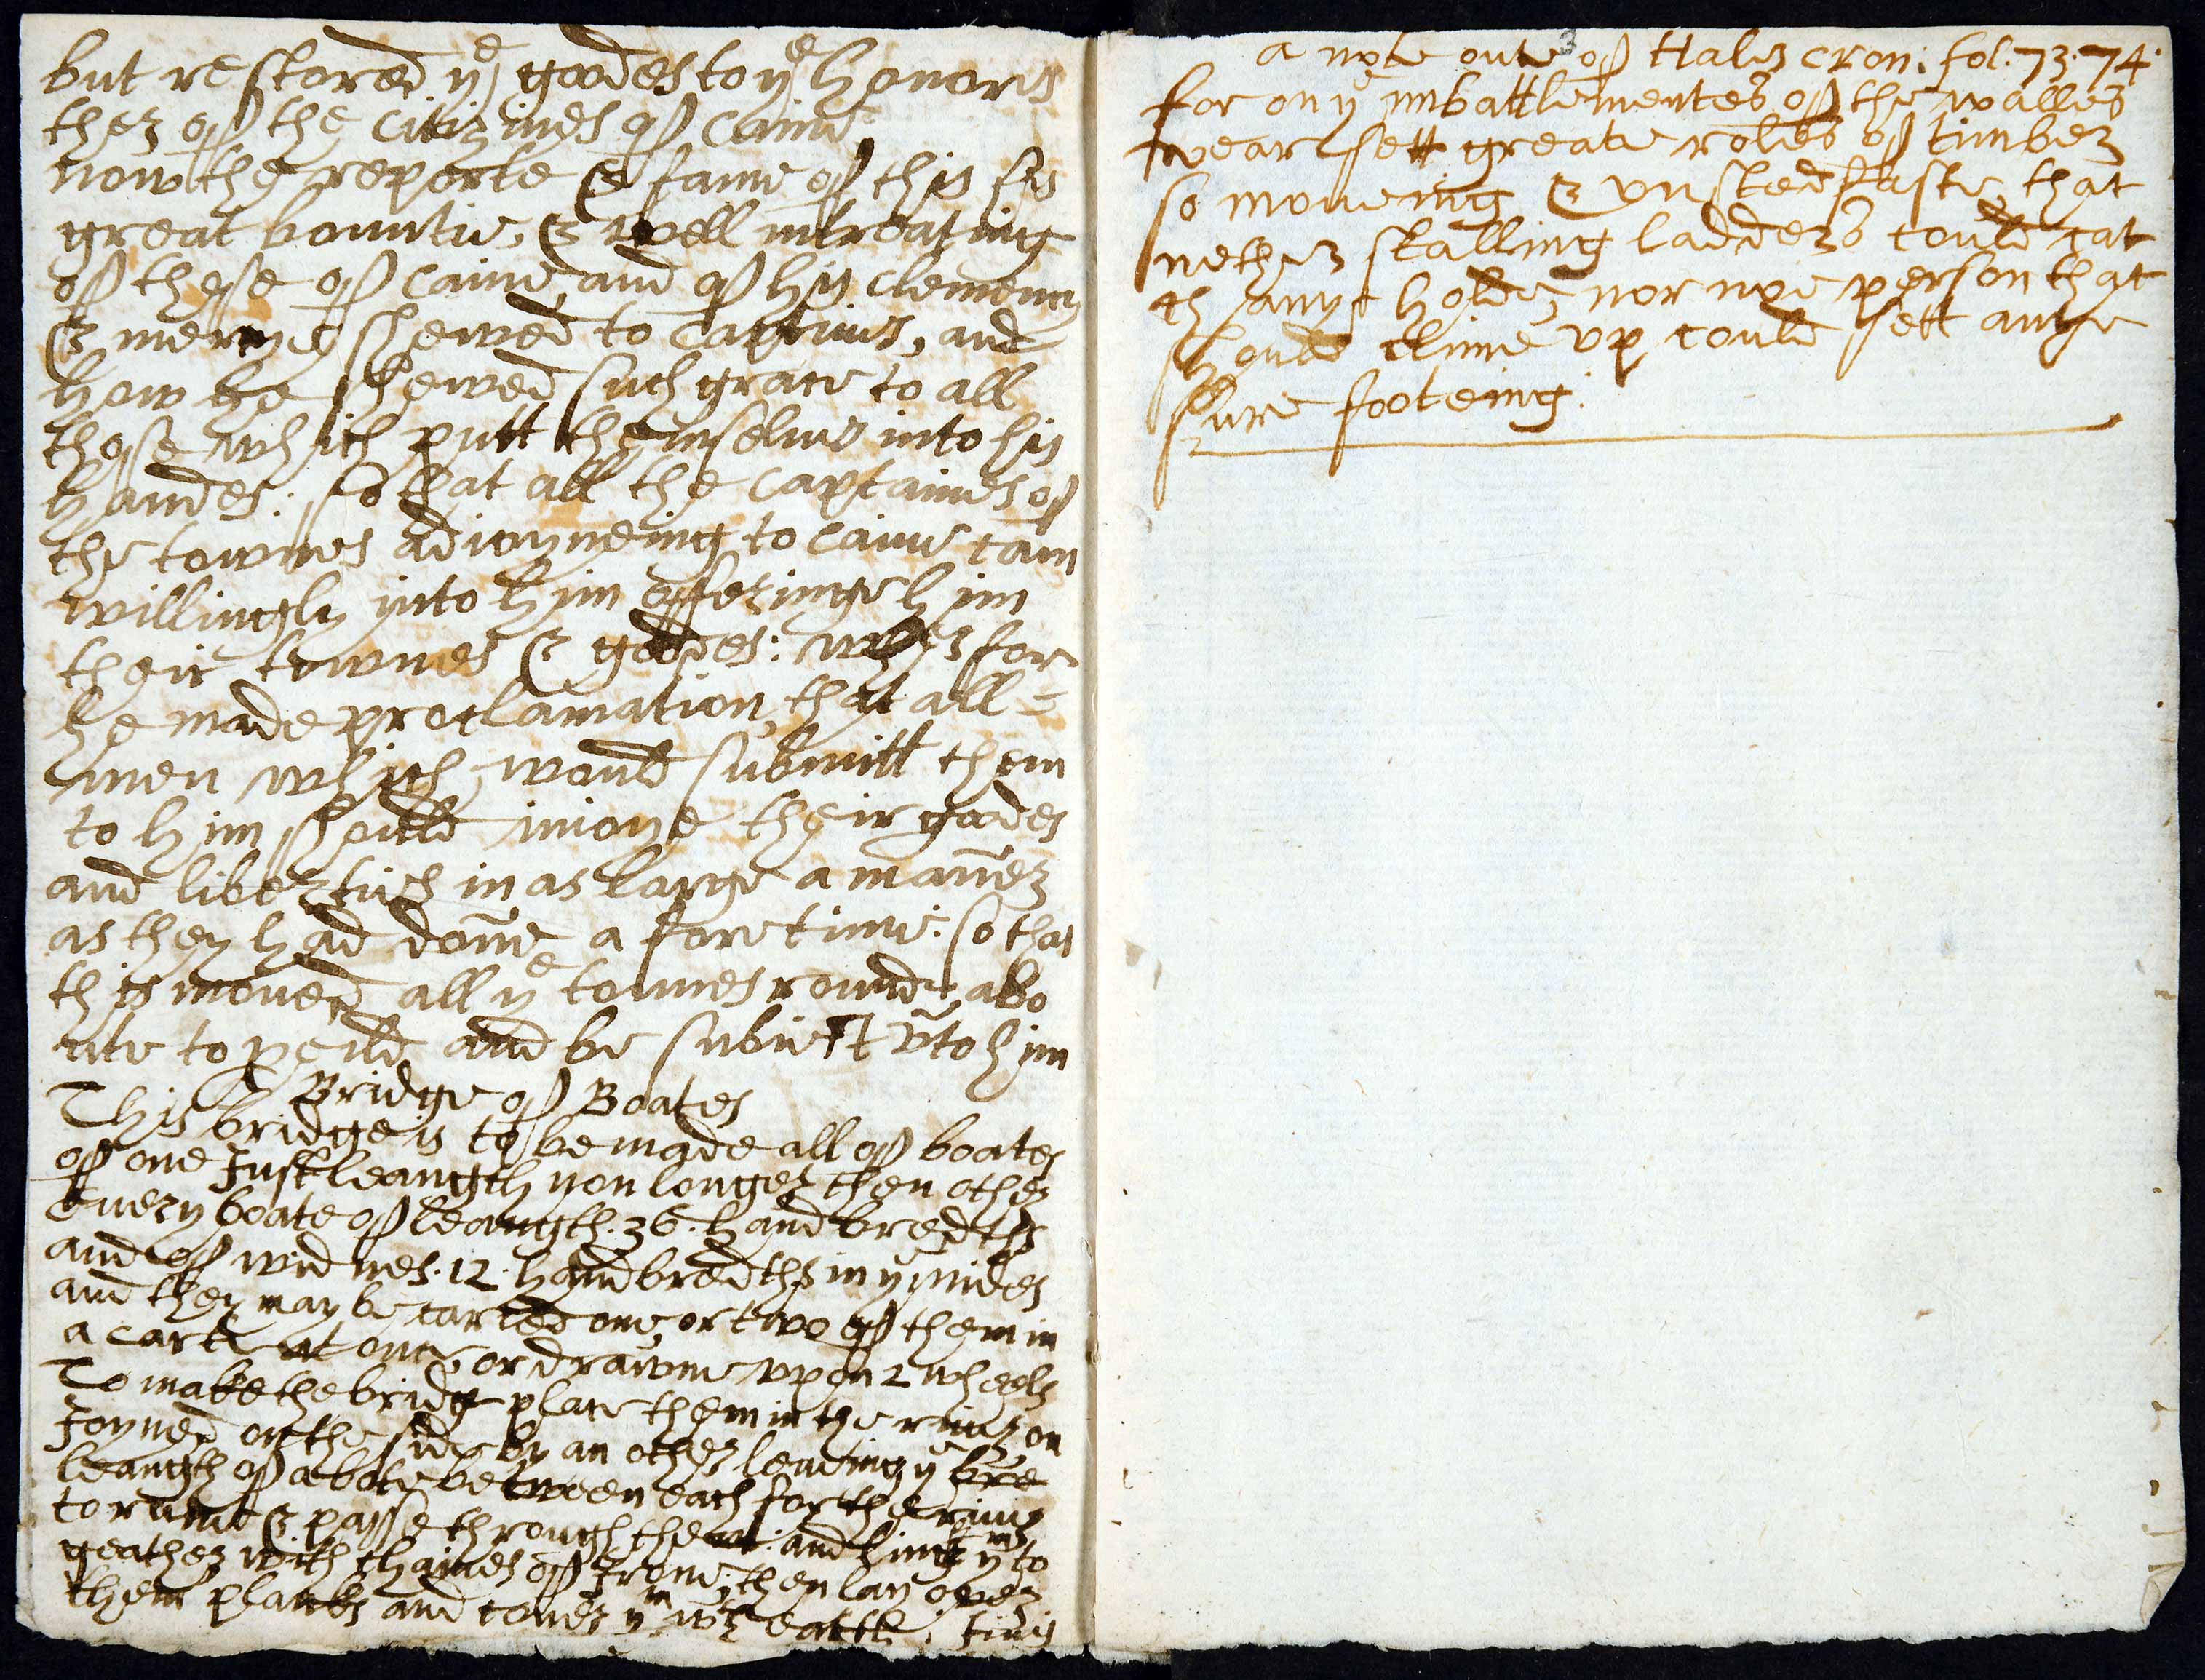 but restored yᵉ goodes to yᵉ honors
ther of the citizines of Caine
now the reporte & fame of this his
great bountie, & well intreating
of these of Caine, and of his clemenci
& mercye shewed to captiues, and
how he shewed such grace to all
those which putt themselues into his
handes: so that all the captaines of
the townes adioyneing to Caine cam
willingly into him offeringe him
their townes & goodes: wherfor
he made proclamation, that all =
men which would submitt them
to him should inioye their goodes
and liberties in as large a mañer
as they had doñe afore time: so that
this moued all yᵉ tounes rounde abo
ute to yeild and be subiect ṽto him
A Bridge of Boates
This bridge is to be made all of boates
of one Just leangth non longer then other
euery boate of leangth. 36. hand bredths
and of widnes. 12. handbredths in yᵉ mides
and they may be caried one, or two of them in
a carte at once, or drawne vpon 2 wheels
To make the bridg place them in the riuer on
Joyned on the side by an other leauing yᵉ bre
leangth of a bote between each for the riuer
to runne & passe through them. and linck yᵐ to
geather with chaines of Irone, then lay ouer
them plancks and couer yᵐ wᵗʰ earth. finis
3
a note oute of Hales cron: fol. 73. 74.
for on yᵉ imbattlementes of the walles
wear sett greate roles of timber
so moueing & vnstedfaste that
nether skalling ladders could cat
ch anye holde, nor noe person that
should clime vp could sett anye
sure footeing.